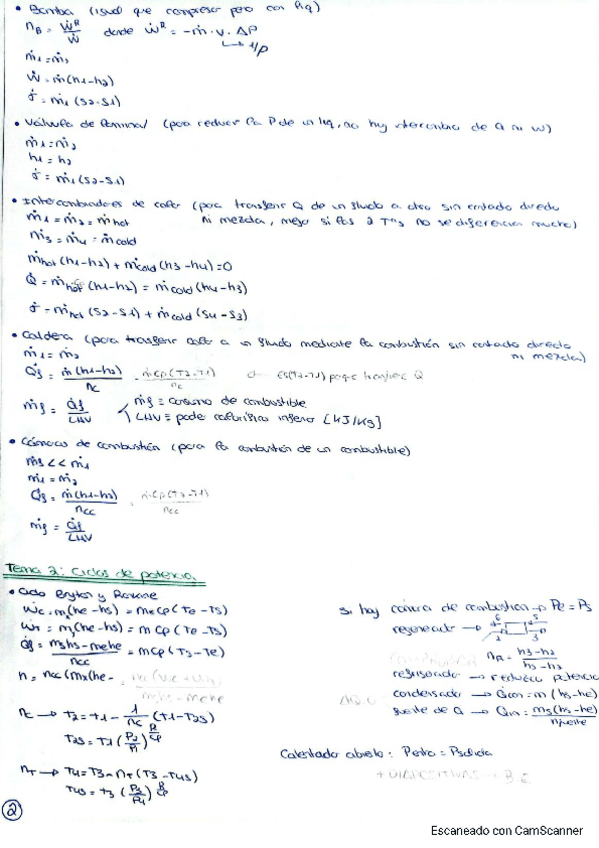 • Bomba (igual que compresor pero con liq)
ηB = ẆR/Ẇ donde ẆR = -ṁ · v · ΔP
↳ 1/ρ
ṁ1 = ṁ2
Ẇ = ṁ(h1-h2)
σ̇ = ṁ1 (s2-s1)
• Válvula de laminar (para reducir la P de un liq, no hay intercambio de Q ni W)
ṁ1 = ṁ2
h1 = h2
σ̇ = ṁ1(s2-s1)
• Intercambiadores de calor (para transferir Q de un fluido a otro sin contacto directo
ni mezcla, mejor si las 2 Tas no se diferencian mucho)
ṁ1 = ṁ2 = ṁhot
ṁ3 = ṁ4 = ṁcold
ṁhot(h1-h2) + ṁcold(h3-h4) = 0
Q̇ = ṁhot(h1-h2) = ṁcold(h4-h3)
σ̇ = ṁhot (s2-s1) + ṁcold (s4-s3)
• Caldera (para transferir calor a un fluido mediante la combustión sin contacto directo
ni mezcla)
ṁ1 = ṁ2
Q̇f = ṁ(h1-h2)/ηc = ṁcp(T2-T1)/ηc
ṁf = Q̇f/LHV
ṁf = consumo de combustible
LHV = poder calorífico inferior [kJ/kg]
• Cámaras de combustión (para la combustión de un combustible)
ṁf << ṁ1
ṁ1 = ṁ2
Q̇f = ṁ(h1-h2)/ηcc = ṁcp(T2-T1)/ηcc
ṁf = Q̇f/LHV
Tema 2: Ciclos de potencia.
• Ciclo Brayton y Rankine
Ẇc = m(he-hs) = m cp (Te-Ts)
ẆT = m(he-hs) = m cp (Te-Ts)
Q̇f = m3h3 - mehe/ηcc = m cp (T3-Te)
ηc → T2 = T1 - 1/ηc (T1-T2s)
T2s = T1 (P2/P1)^R/cp
ηT → T4 = T3 - ηT (T3-T4s)
T4s = T3 (P4/P3)^R/cp
Si hay cámara de combustión → Pe = Ps
regenerador →
ηR = h3-h2/h5-h2
→ reducir potencia
condensador → Qcon = m (hs-he)
fuente de Q → Qin = m(hs-he)/ηfuente
Calentador abierto: Pentra = Psalida
+ DIAPOSITIVAS
2
Escaneado con CamScanner